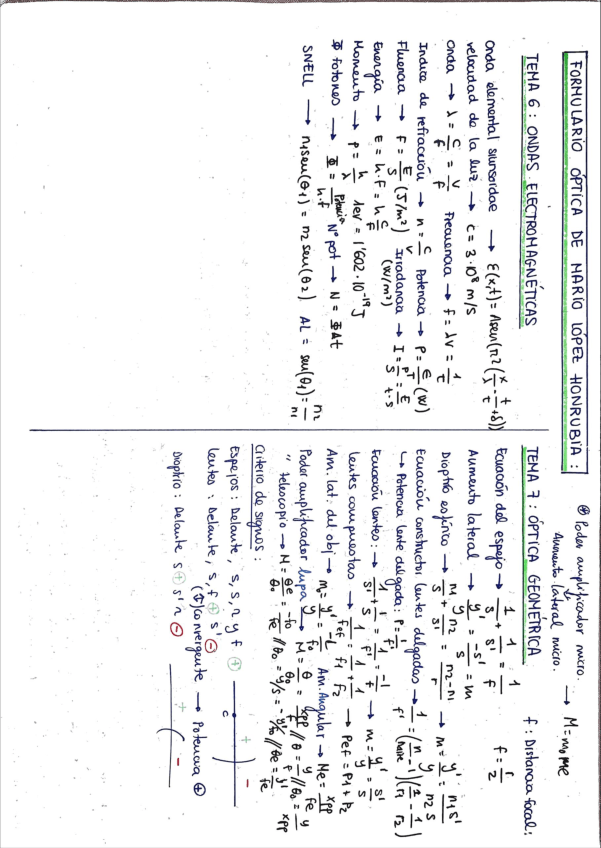 FORMULARIO ÓPTICA DE MARIO LÓPEZ HONRUBIA:
TEMA 6: ONDAS ELECTROMAGNÉTICAS
Onda elemental → E(x,t) = Asen(π2(x/λ - t/T + δ))
velocidad de la luz → c = 3·10⁸ m/s
Onda → λ = c/f = v/f Frecuencia → f = λv = 1/t
Indice de refracción → n = c/v Potencia → P = E/T (W)
Fluencia → F = E/S (J/m²) Irradancia → I = P/S = E/t·s
(W/m²)
Energía → E = h·F = h c/F
Momento → p = h/λ 1eV = 1'602·10⁻¹⁹ J
Φ fotones → Φ = Potencia/h.f Nº pot → N = ΦΔt
SNELL → n1 sen(θ1) = n2 sen(θ2) AL = sen(θ1) = n2/n1
⊕ Poder amplificador micro. → M = mo Me
Aumento lateral micro.
TEMA 7: ÓPTICA GEOMÉTRICA f: Distancia focal:
Ecuación del espejo → 1/s + 1/s' = 1/f f = r/2
Aumento lateral → y'/y = -s'/s = m
Dioptrio esférico → n1/s + n2/s' = n2-n1/r → m = y'/y = n1s'/n2s
Ecuación constructor lentes delgadas → 1/f' = (n/naire - 1)(1/r1 - 1/r2)
↳ Potencia lente delgada: P = 1/f'
Ecuación lentes: → 1/s' + 1/s = 1/f' = -1/f → m = y'/y = s'/s
Lentes compuestas → 1/fef = 1/f1 + 1/f2 → Pef = P1 + P2
Am. lat. del obj → mo = y'/y = -L/fo Am. Angular → Me = xpp/fe
Poder amplificador lupa → M = θ/θo = xpp/f // θ = y/f // θo = y/xpp
" telescopio → M = θe/θo = -fo/fe // θo = y/s = -y'/fo // θe = y'/fe
Criterio de signos:
Espejos: Delante, s, s, r y f ⊕
Lentes: Delante, s, f ⊕ s' ⊖
(I) Convergente → Potencia ⊕
Dioptrio: Delante s ⊕ s' r ⊖
c
+
-
+
-